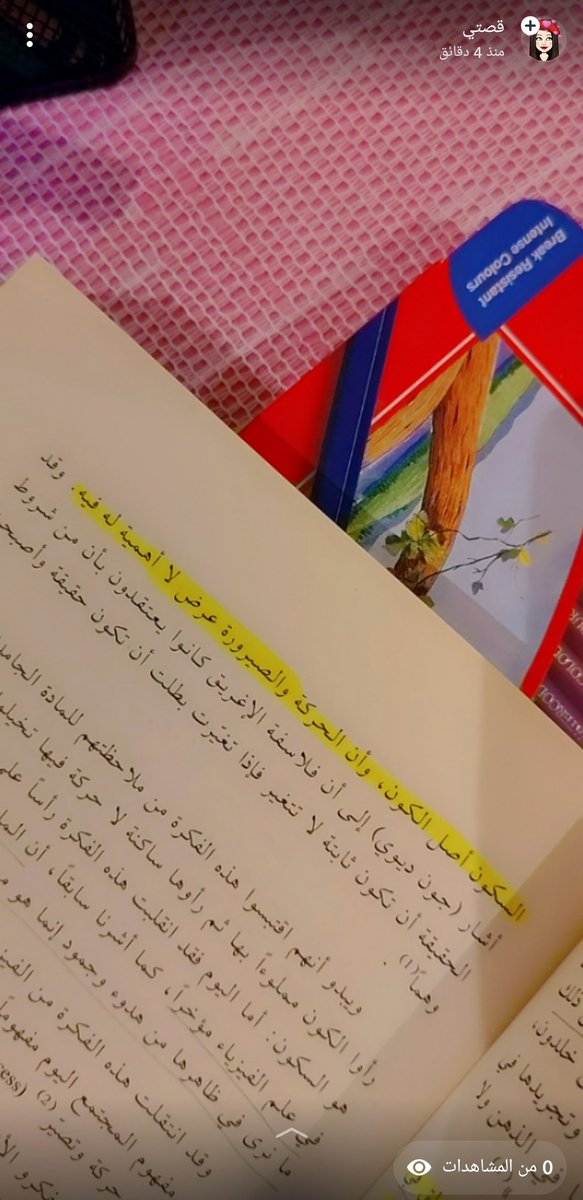 قصتي
منذ 4 دقائق
Break Resistant
Intense Colours
السكون أصل الكون، وأن الحركة والصيرورة عرض لا أهمية له فيه. وقد
أشار (جون ديوي) إلى أن فلاسفة الإغريق كانوا يعتقدون بأن من شروط
الحقيقة أن تكون ثابتة لا تتغير فإذا تغيرت بطلت أن تكون حقيقة وأصبحت
وهماً(1).
ويبدو أنهم اقتبسوا هذه الفكرة من ملاحظتهم للمادة الجامدة
رأوا الكون مملوءاً بها ثم رأوها ساكنة لا حركة فيها
هو السكون. أما اليوم فقد انقلبت هذه الفكرة رأساً على
في علم الفيزياء مؤخراً، كما أشرنا سابقاً، أن
ما نرى في ظاهرها من هدوء وجمود إنما هو
وقد انتقلت هذه الفكرة من
مفهوم المجتمع اليوم مفهوماً
حركة وتصير (2) (ess
خلدون،
وتجريدها في
الذهن ولا
في
0 من المشاهدات